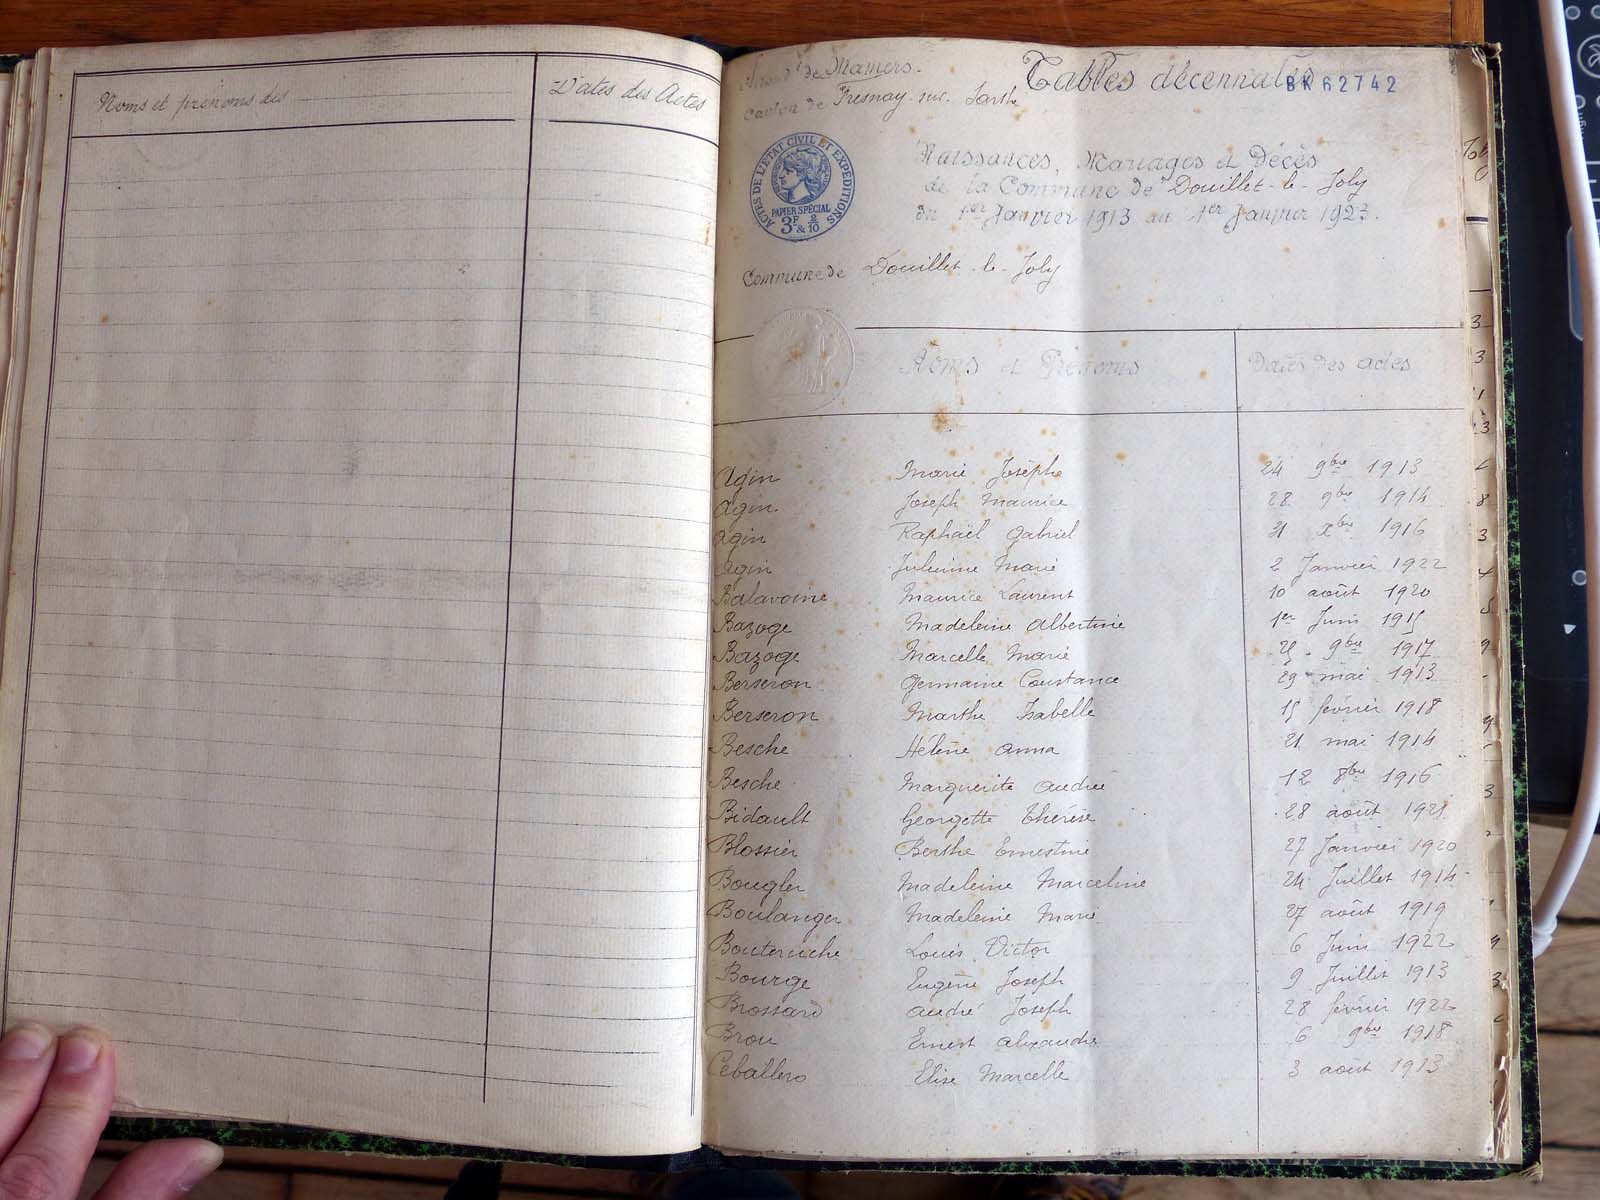 Noms et prénoms des
Dates des Actes
Arrondt de Mamers.
Canton de Fresnay-sur-Sarthe
Tables décennales
BK62742
ACTES DE L'ETAT CIVIL ET EXPEDITIONS
PAPIER SPÉCIAL
3F & 2/10
Naissances, Mariages et Décès
de la Commune de Douillet-le-Joly
du 1er Janvier 1913 au 1er Janvier 1923.
Commune de Douillet-le-Joly
Noms et Prénoms Dates des actes
Agin Marie Josèphe 24 9bre 1913
Agin Joseph Maurice 28 9bre 1914
Agin Raphaël Gabriel 31 Xbre 1916
Agin Julienne Marie 2 Janvier 1922
Balavoine Maurice Laurent 10 août 1920
Bazoge Madeleine Albertine 1er Juin 1915
Bazoge Marcelle Marie 25 9bre 1917
Berseron Germaine Constance 29 mai 1913
Berseron Marthe Isabelle 15 février 1918
Besche Hélène Anna 21 mai 1914
Besche Marguerite Andrée 12 8bre 1916
Bidault Georgette Thérèse 28 août 1921
Blossier Berthe Ernestine 27 Janvier 1920
Bougler Madeleine Marceline 24 Juillet 1914
Boulanger Madeleine Marie 27 août 1919
Bouteruche Louis Victor 6 Juin 1922
Bourge Eugène Joseph 9 Juillet 1913
Brossard André Joseph 28 février 1922
Brou Ernest Alexandre 6 9bre 1918
Ceballero Elise Marcelle 3 août 1913